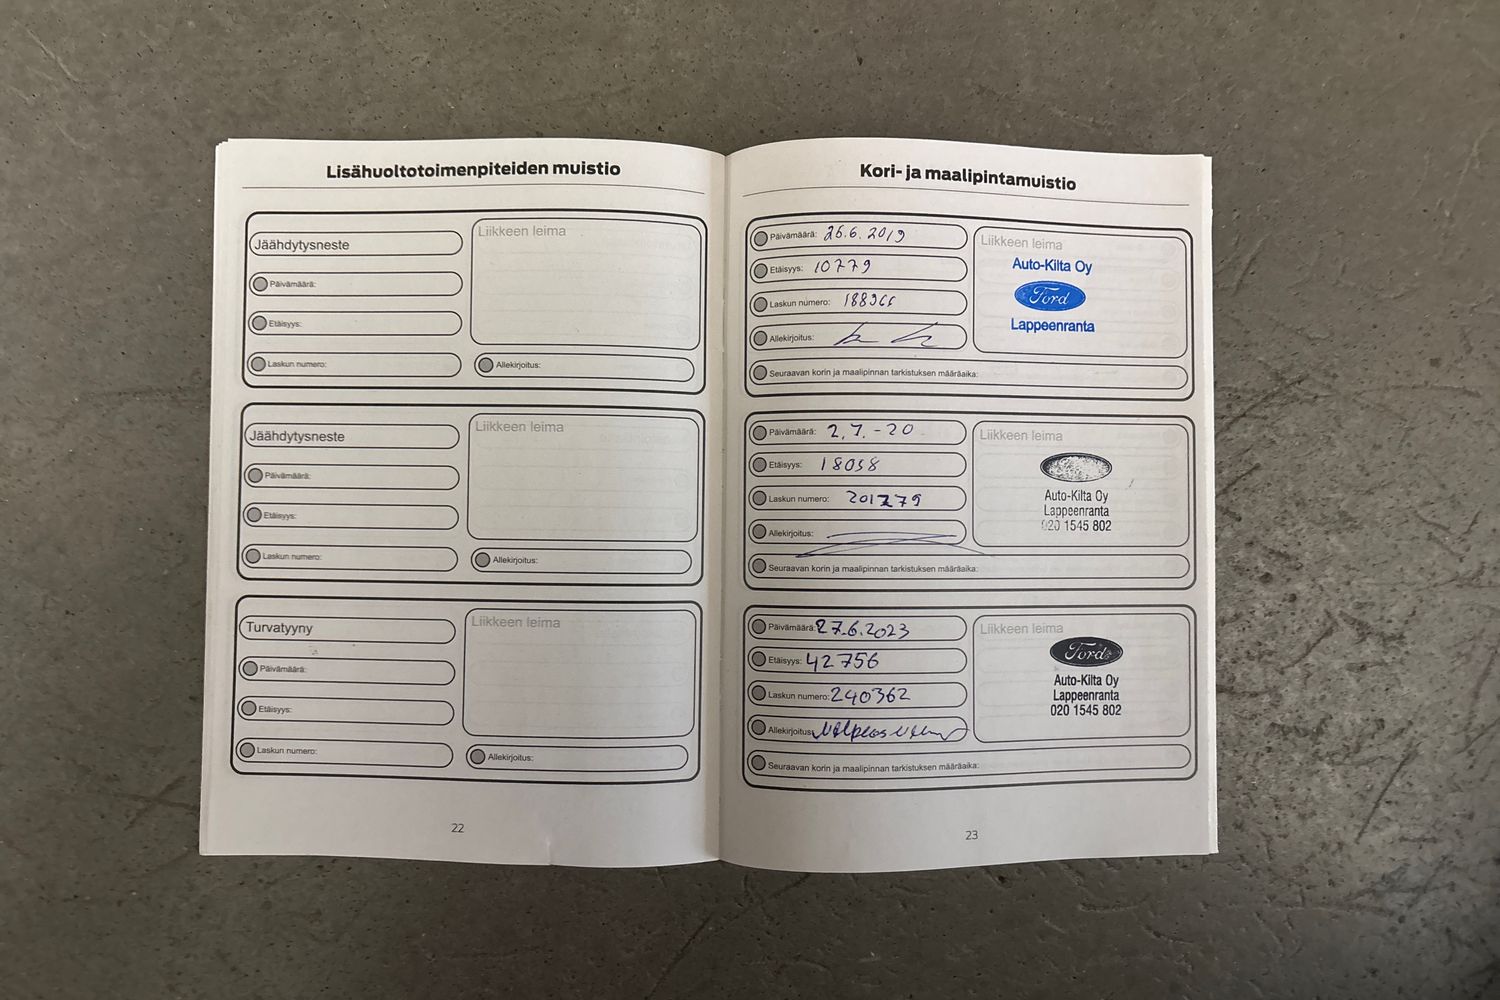 Lisähuoltotoimenpiteiden muistio
Jäähdytysneste
Päivämäärä:
Etäisyys:
Laskun numero:
Liikkeen leima
Allekirjoitus:
Jäähdytysneste
Päivämäärä:
Etäisyys:
Laskun numero:
Liikkeen leima
Allekirjoitus:
Turvatyyny
Päivämäärä:
Etäisyys:
Laskun numero:
Liikkeen leima
Allekirjoitus:
22
Kori- ja maalipintamuistio
Päivämäärä: 26.6.2019
Etäisyys: 10779
Laskun numero:
Allekirjoitus:
Seuraavan korin ja maalipinnan tarkistuksen määräaika:
Liikkeen leima
Auto-Kilta Oy
Ford
Lappeenranta
Päivämäärä: 2.7.-20
Etäisyys: 18038
Laskun numero: 201279
Allekirjoitus:
Seuraavan korin ja maalipinnan tarkistuksen määräaika:
Liikkeen leima
Auto-Kilta Oy
Lappeenranta
020 1545 802
Päivämäärä: 27.6.2023
Etäisyys: 42756
Laskun numero: 240362
Allekirjoitus:
Seuraavan korin ja maalipinnan tarkistuksen määräaika:
Liikkeen leima
Ford
Auto-Kilta Oy
Lappeenranta
020 1545 802
23